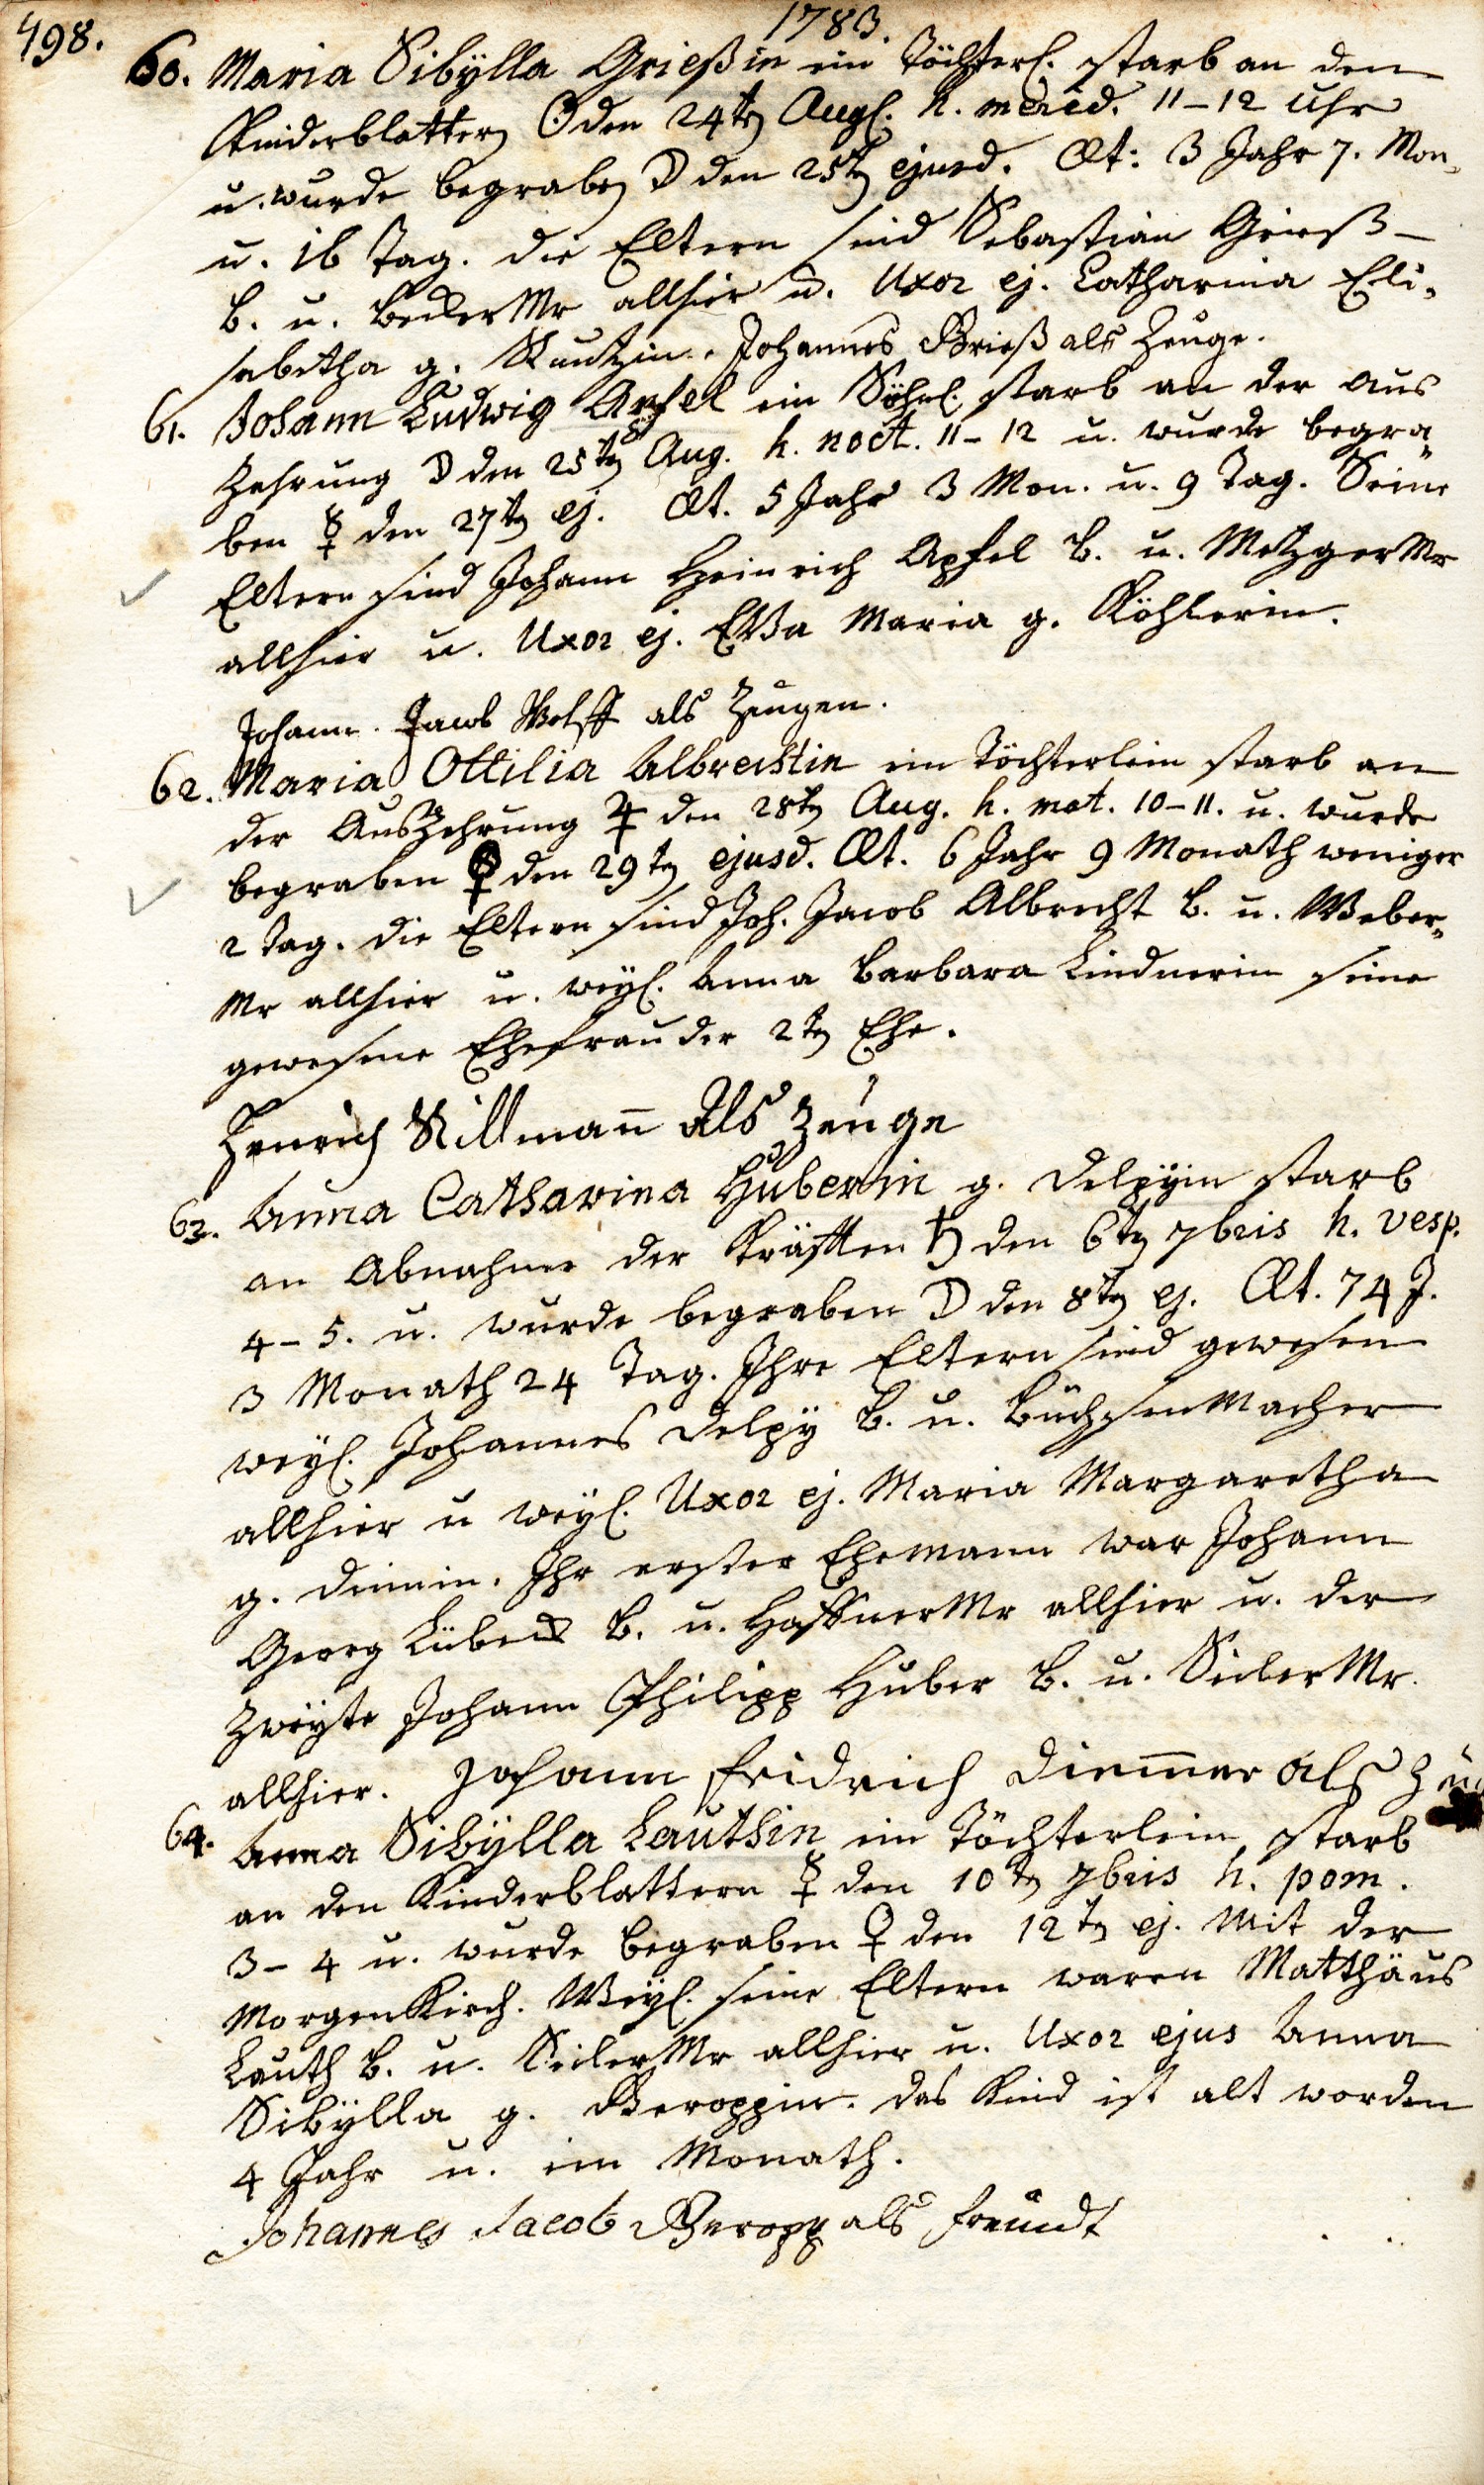 498.
1783.
60. Maria Sibÿlla Grießin ein Töchterl. starb an den
Kinderblattern ☉ den 24ten Augl. h. merid. 11–12 Uhr
u. wurde begraben ☽ den 25ten ejusd. Æt: 3 Jahr 7. Mon.
u. 16 Tag. die Eltern sind Sebastian Grieß
b. u. beckerMr allhier u. Uxor ej. Catharina Eli-
sabetha g. Johannes Grieß als Zeuge.
61. Johann Ludwig Apfel ein Söhnl. starb an der Aus
Zehrung ☽ den 25ten Aug. h. noct. 11–12 u. wurde begra-
ben ☿ den 27ten ej. Æt. 5 Jahr 3 Mon. u. 9 Tag. Seine
Eltern sind Johann Heinrich Apfel b. u. MetzgerMr
allhier u. Uxor ej. EVa Maria g. Köhlerin.
Johann Jacob Wolff als Zeugen.
62. Maria Ottilia Albrechtin ein Töchterlein starb an
der AusZehrung ♃ den 28ten Aug. h. mat. 10–11. u. wurde
begraben ♀ den 29ten ejusd. Æt. 6 Jahr 9 Monath weniger
2 Tag. die Eltern sind Joh. Jacob Albrecht b. u. Weber-
Mr allhier u. weÿl. Anna Barbara Lindnerin seine
gewesene Ehefrau der 2ten Ehe.
Henrich Rillmañ Als Zeuge
63. Anna Catharina Huberin g. Delpÿin starb
an Abnahme der Kräfften ♄ den 6ten 7bris h. vesp.
4–5. u. wurde begraben ☽ den 8ten ej. Æt. 74 J.
3 Monath 24 Tag. Ihre Eltern sind gewesen
weÿl. Johannes Delpÿ b. u. BüchsenMacher
allhier u weÿl. Uxor ej. Maria Margaretha
g. Ihr erster Ehemann war Johann
Georg b. u. HaffnerMr allhier u. der
Zweÿte Johann Philipp Huber b. u. SeilerMr.
allhier. Johann Fridrich Diem̄er als Zeu
64. Anna Sibÿlla Lauthin ein Töchterlein starb
an den Kinderblattern ☿ den 10ten 7bris h. pom.
3–4 u. wurde begraben ♀ den 12ten ej. Mit der
MorgenKirch. Weÿl. seine Eltern waren Matthäus
Lauth b. u. SeilerMr allhier u. Uxor ejus Anna
Sibÿlla g. Beroppin. das Kind ist alt worden
4 Jahr u. ein Monath.
Johannes Jacob Beropp als freundt